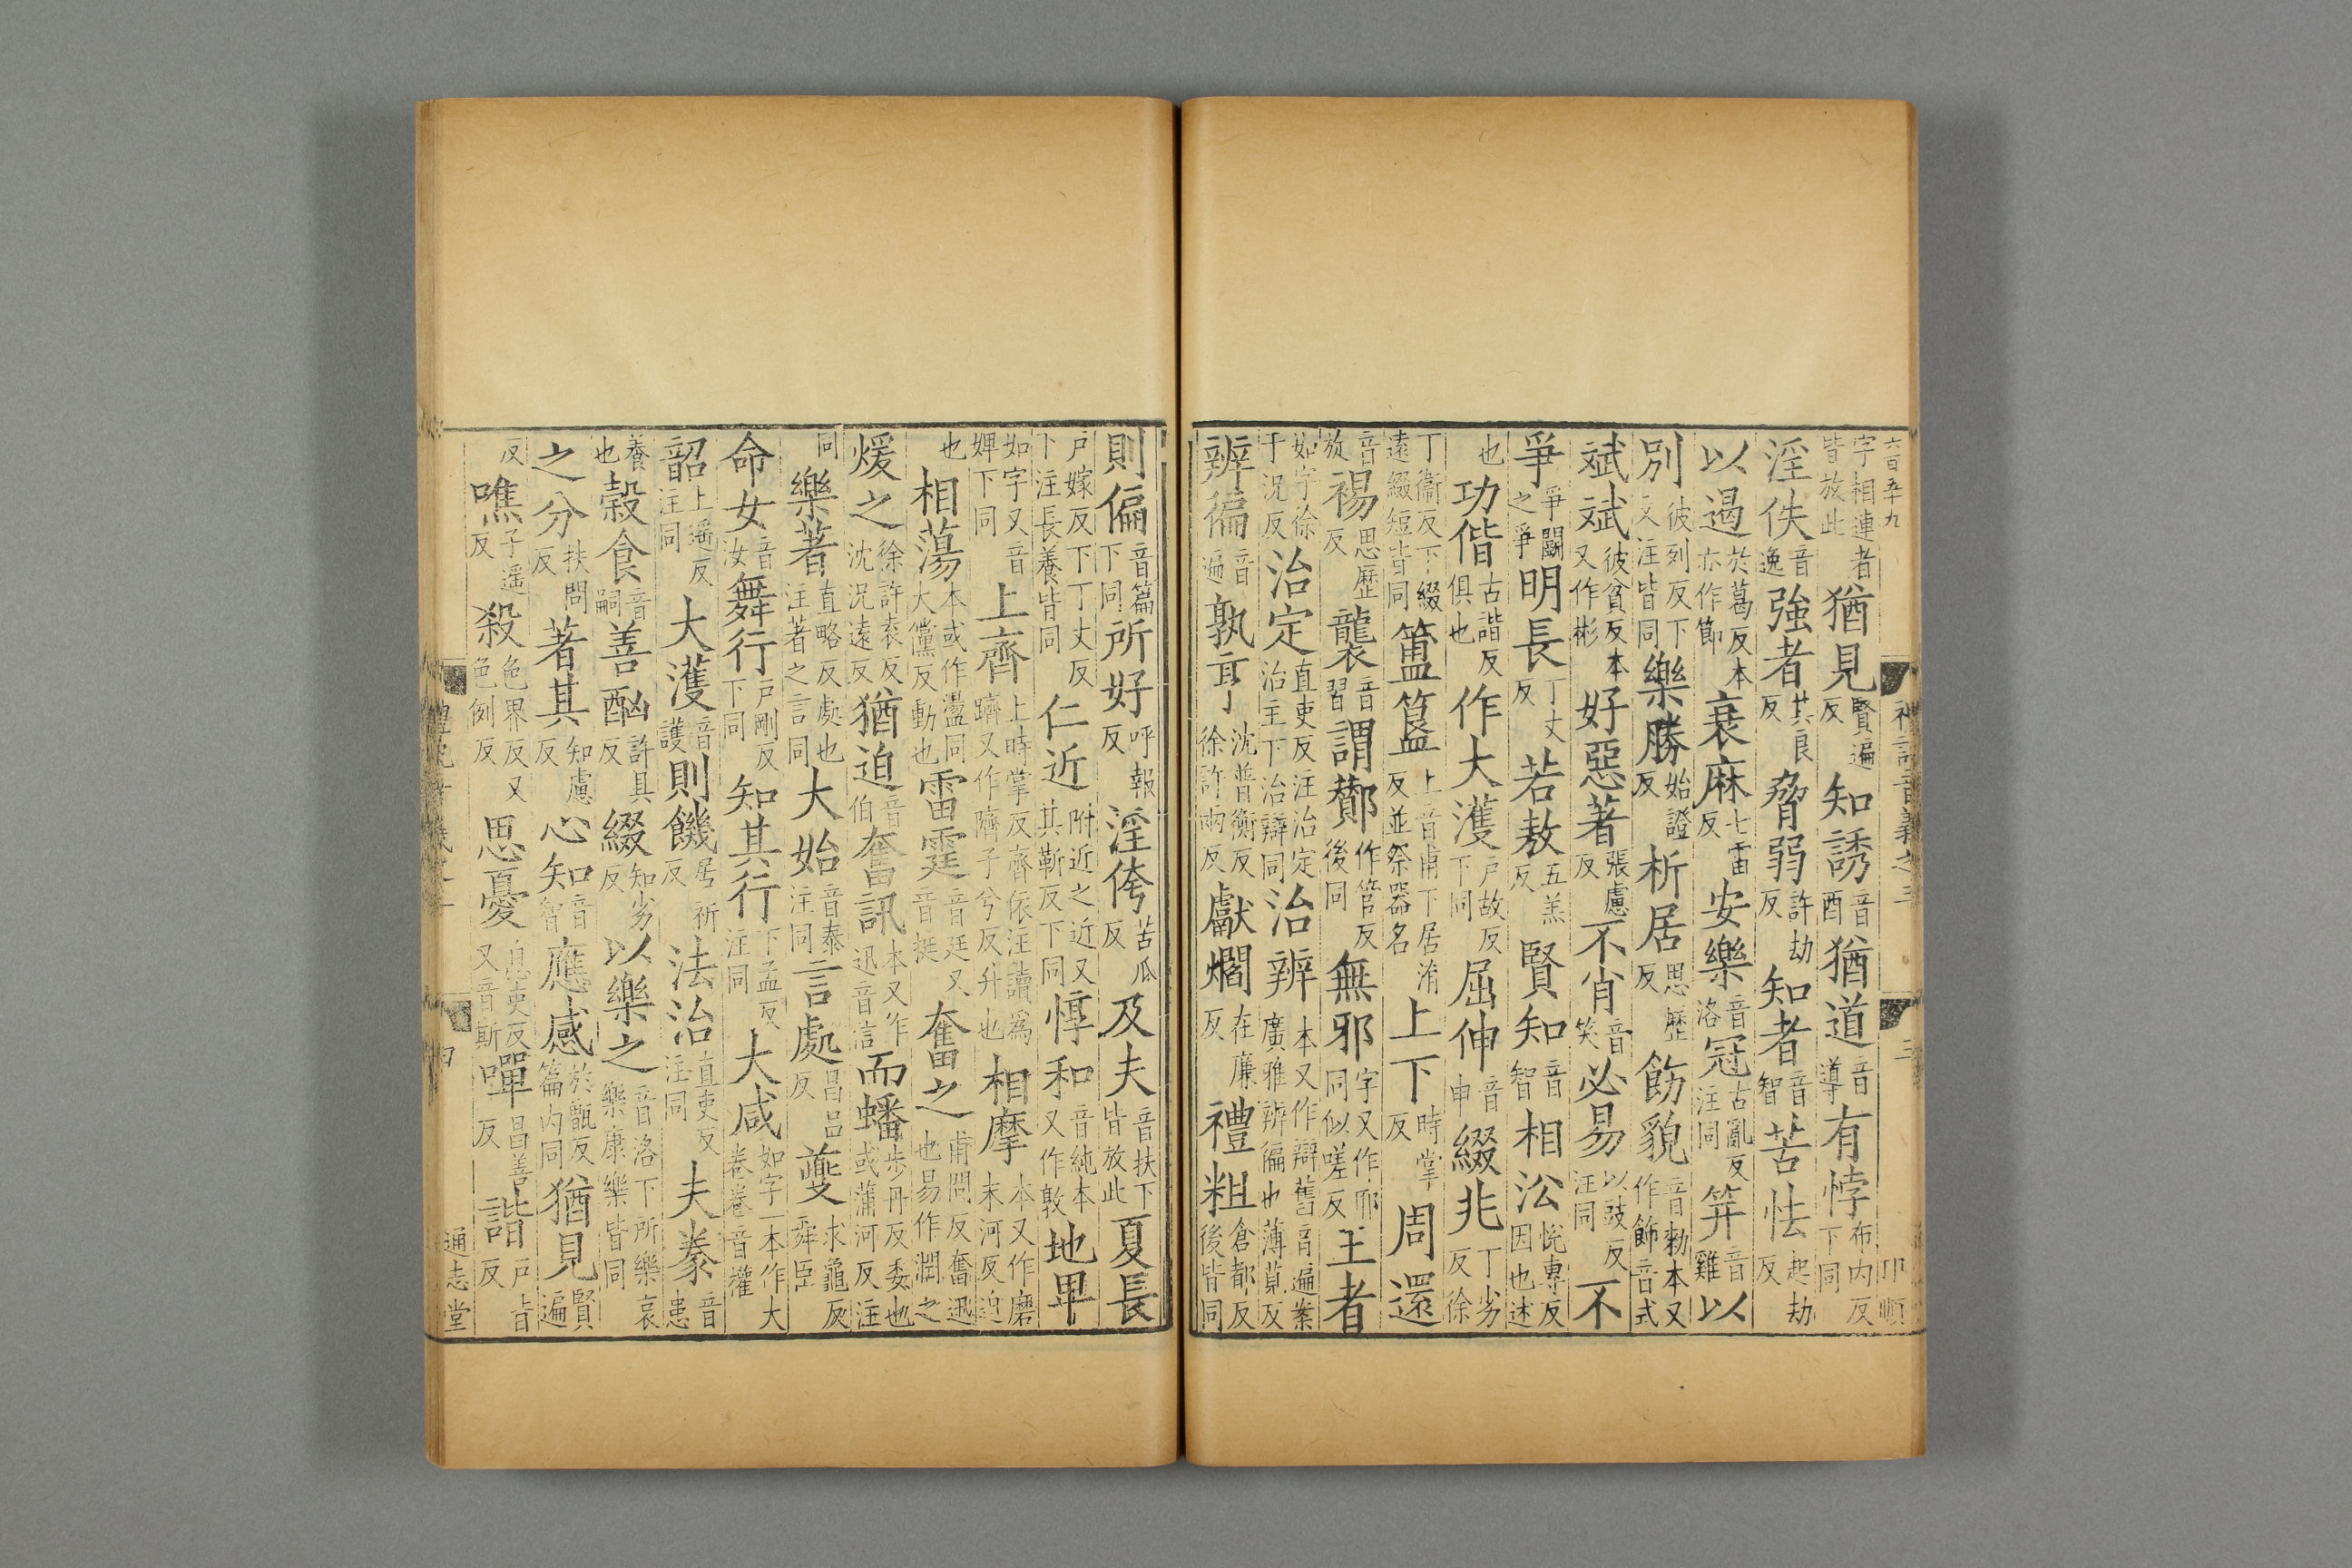 六百五十九
禮記音義之三
三
卭順
字相連者皆放此 猶見賢遍反 知誘音酉 猶道音導 有悖布内反下同
淫佚音逸 強者其良反 脅弱許劫反 知者音智 苦怯起劫反
以遏於葛反本亦作節 衰麻七雷反 安樂音洛 冠古亂反注同 笄音雞 以
別彼列反下文注皆同 樂勝始證反 析居思歷反 飭貌音勑本又作飾音式
斌斌彼貧反本又作彬 好惡著張慮反 不肖音笑 必易以豉反注同 不
爭爭鬭之爭 明長丁丈反 若敖五羔反 賢知音智 相㳂悅專反因也述
也 功偕古諧反俱也 作大濩戸故反下同 屈伸音申 綴兆丁劣反徐
丁衞反下綴遠綴短皆同 簠簋上音甫下居洧反並祭器名 上下時掌反 周還
音放 裼思歷反 襲音習 謂酇作管反後同 無邪字又作耶同似嗟反 王者
如字徐于況反 治定直吏反注治定治主下治辯同 治辨本又作辯舊音遍案廣雅辨徧也薄莧反
辨徧音遍 孰亨沈普衡反徐許兩反 獻爓在廉反 禮粗倉都反後皆同
則偏音篇下同 所好呼報反 淫侉苦瓜反 及夫音扶下皆放此 夏長
戸嫁反下丁丈反下注長養皆同 仁近附近之近又其靳反下同 惇和音純本又作敦 地卑
如字又音婢下同 上齊上時掌反齊依注讀爲躋又作隮子兮反升也 相摩本又作磨末河反迫
也 相蕩本或作盪同大黨反動也 雷霆音廷又音挺 奮之甫問反奮迅也易作潤之
煖之徐許袁反沈況遠反 猶迫音伯 奮訊本又作迅音信 而蟠步丹反委也或蒲河反注
同 樂著直略反處也注著之言同 大始音泰注同 言處昌呂反 夔求龜反舜臣
命女音汝 舞行戸剛反下同 知其行下孟反注同 大咸如字一本作大卷卷音權
韶上遥反注同 大濩音護 則饑居祈反 法治直吏反注同 夫豢音患
養也 穀食音嗣 善酗許具反 綴知劣反 以樂之音洛下所樂哀樂康樂皆同
之分扶問反 著其知慮反 心知音智 應感於甑反篇内同 猶見賢遍
反 噍子遥反 殺色界反又色例反 思憂息吏反又音斯 嘽昌善反 諧戸皆反
通志堂